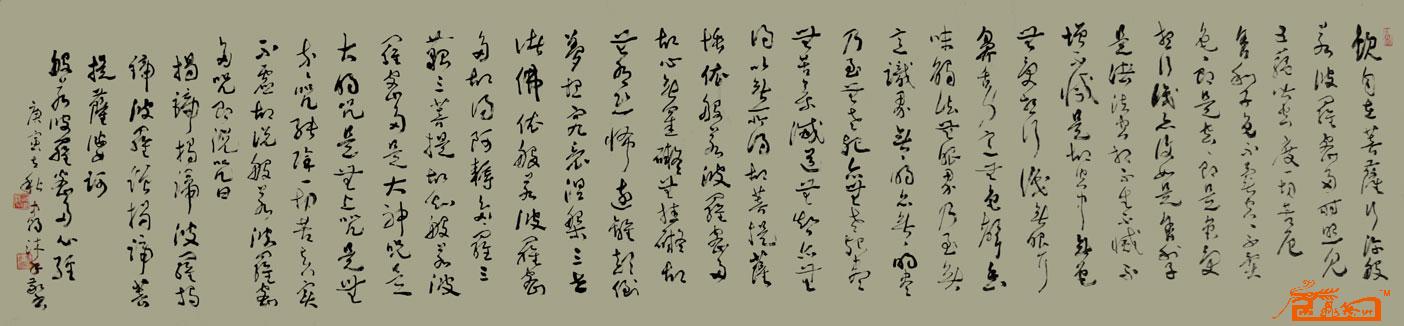 観自在菩薩行深般
若波羅蜜多時照見
五蘊皆空度一切苦厄
舍利子色不異空空不異
色色即是空空即是色受
想行識亦復如是舍利子
是諸法空相不生不滅不
增不減是故空中無色
無受想行識無眼耳
鼻舌身意無色聲香
味觸法無眼界乃至無
意識界無無明亦無無明盡
乃至無老死亦無老死盡
無苦集滅道無智亦無
得以無所得故菩提薩
埵依般若波羅蜜多
故心無罣礙無罣礙故
無有恐怖遠離顛倒
夢想究竟涅槃三世
諸佛依般若波羅蜜
多故得阿耨多羅三
藐三菩提故知般若波
羅蜜多是大神咒是
大明咒是無上咒是無
等等咒能除一切苦真實
不虛故說般若波羅蜜
多咒即說咒曰
揭諦揭諦波羅揭
諦波羅僧揭諦菩
提薩婆訶
般若波羅蜜多心經
庚寅之秋